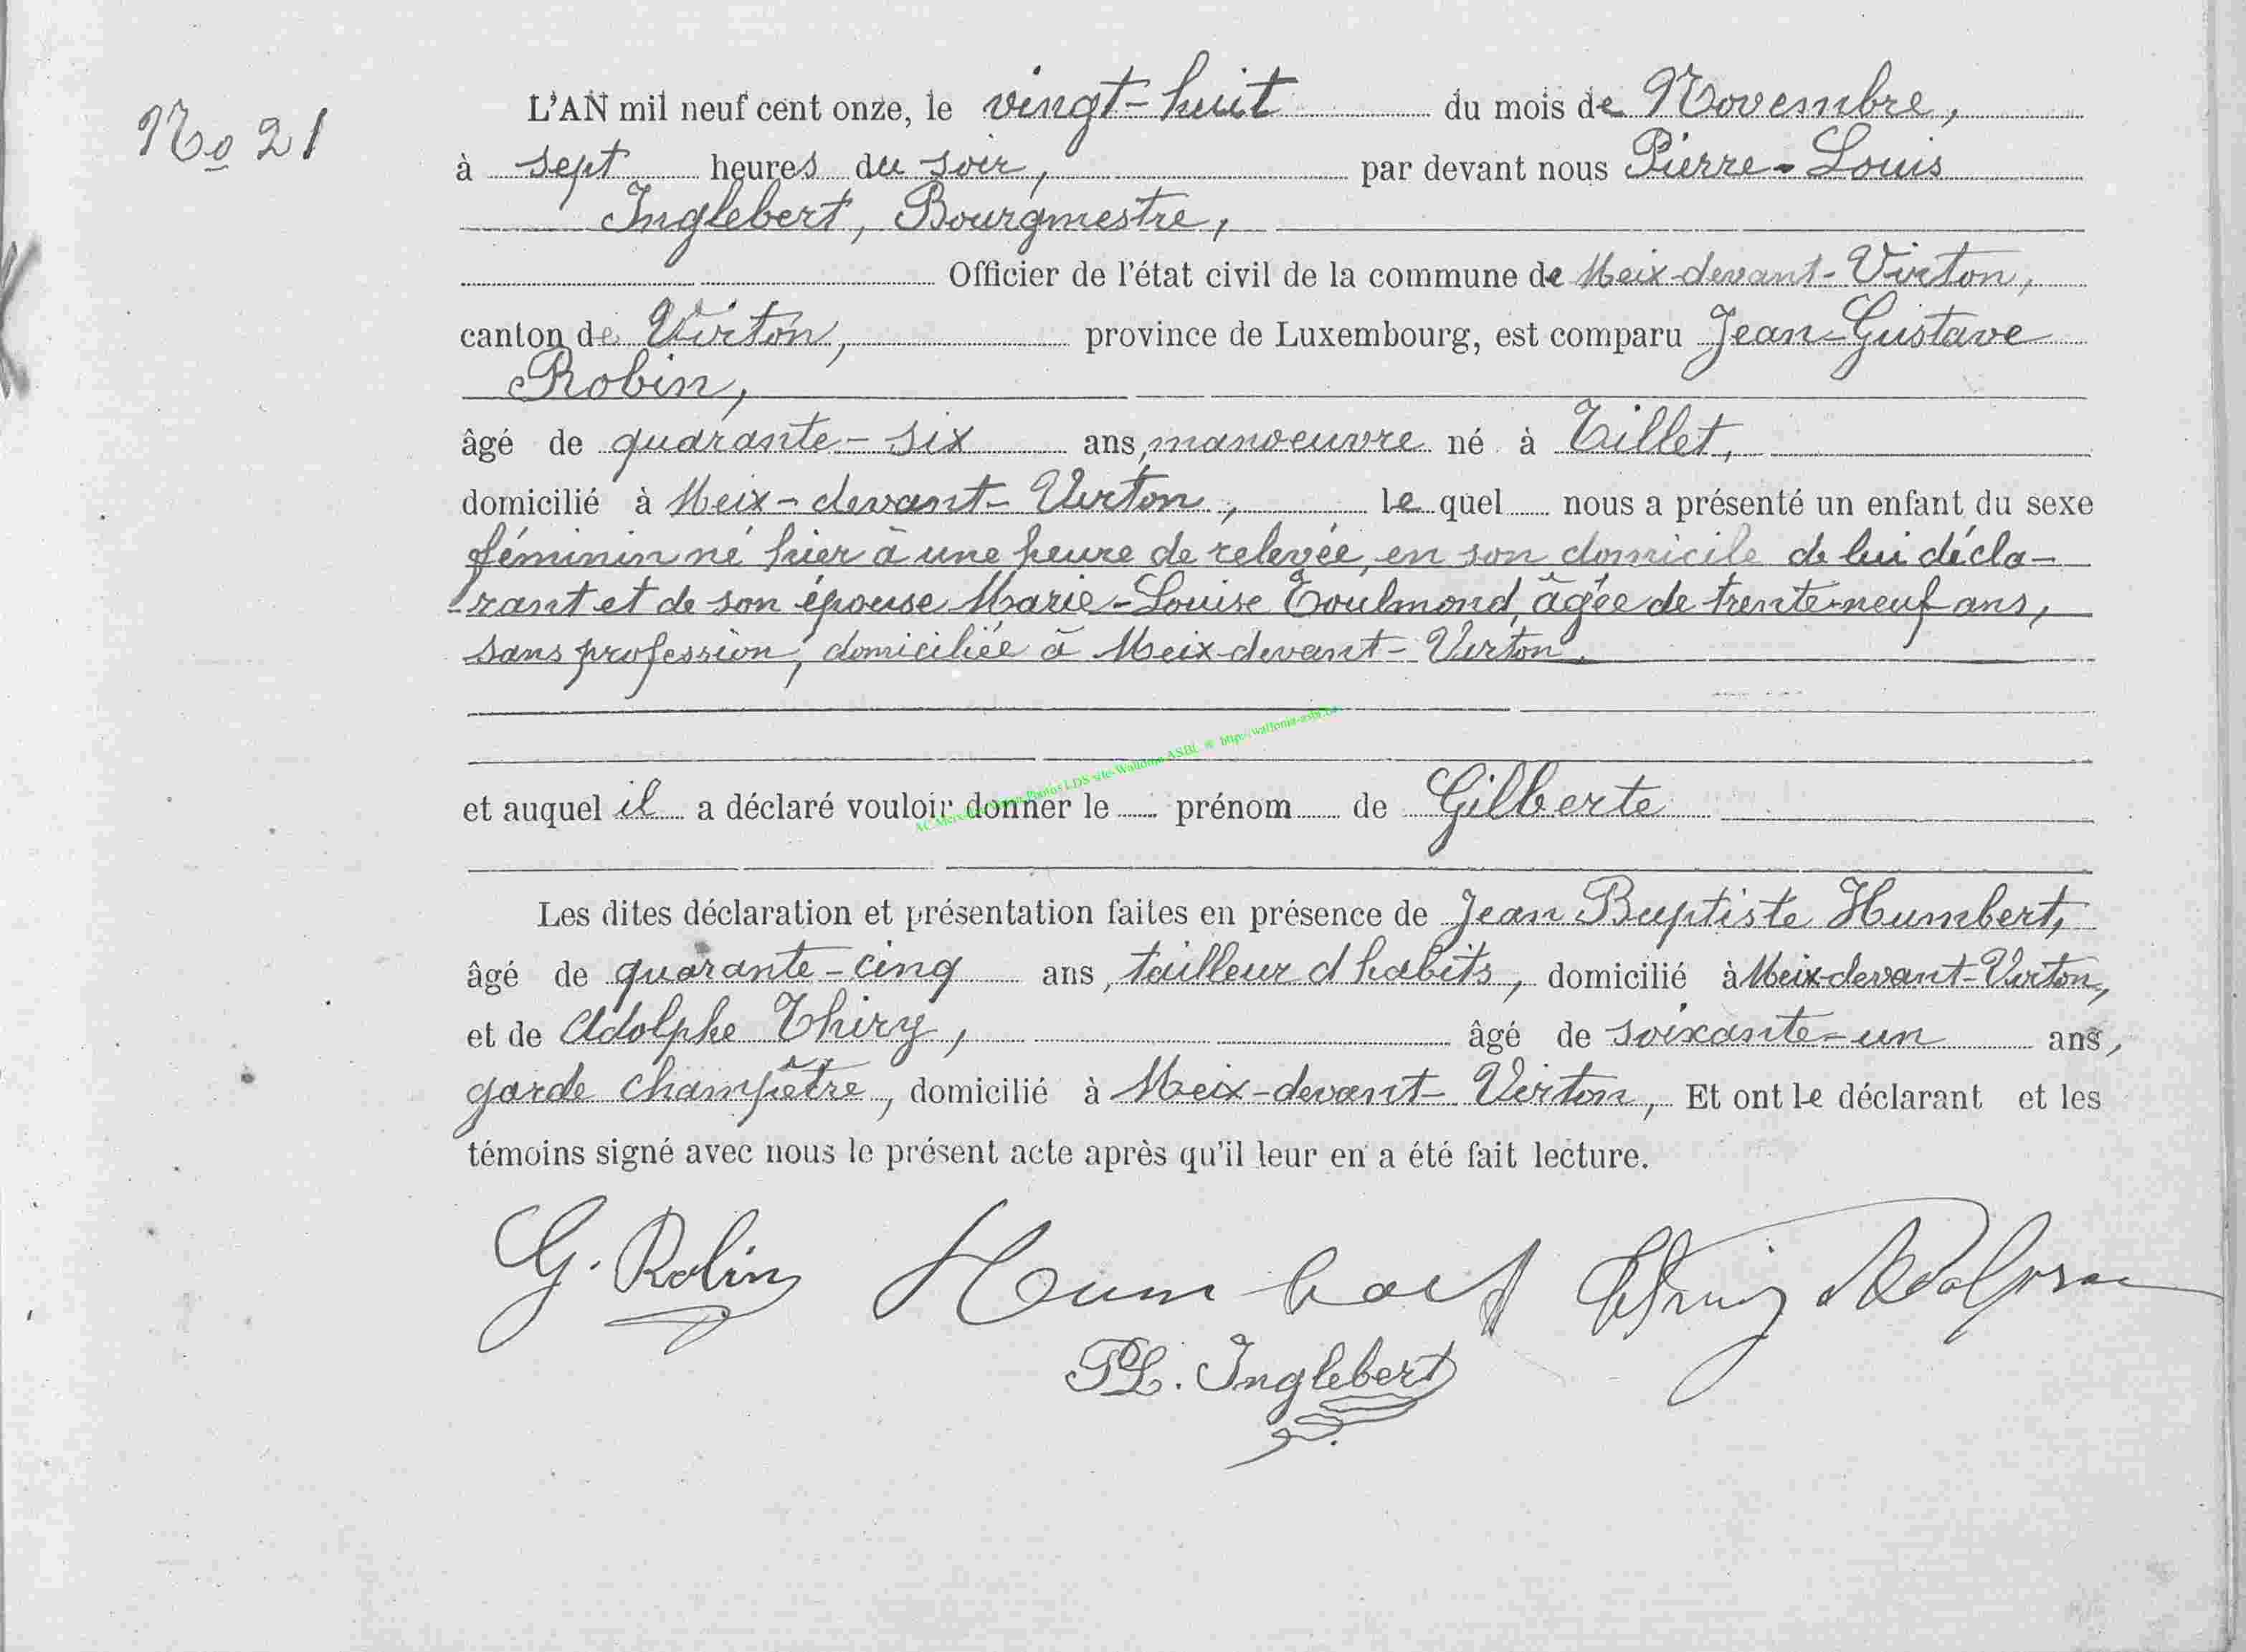 No 21
L'AN mil neuf cent onze, le vingt-huit du mois de Novembre,
à sept heures du soir, par devant nous Pierre-Louis
Inglebert, Bourgmestre,
Officier de l'état civil de la commune de Meix-devant-Virton,
canton de Virton, province de Luxembourg, est comparu Jean-Gustave
Robin,
âgé de quarante-six ans, manoeuvre né à Tillet,
domicilié à Meix-devant-Virton, le quel nous a présenté un enfant du sexe
féminin né hier à une heure de relevée, en son domicile de lui décla-
-rant et de son épouse Marie-Louise Toulmond, âgée de trente-neuf ans,
sans profession, domiciliée à Meix-devant-Virton.
et auquel il a déclaré vouloir donner le prénom de Gilberte
Les dites déclaration et présentation faites en présence de Jean Baptiste Humbert,
âgé de quarante-cinq ans, tailleur d'habits, domicilié à Meix-devant-Virton,
et de Adolphe Thiry, âgé de soixante-un ans,
garde champêtre, domicilié à Meix-devant-Virton, Et ont le déclarant et les
témoins signé avec nous le présent acte après qu'il leur en a été fait lecture.
G. Robin Humbert Thiry Adolphe
PL. Inglebert